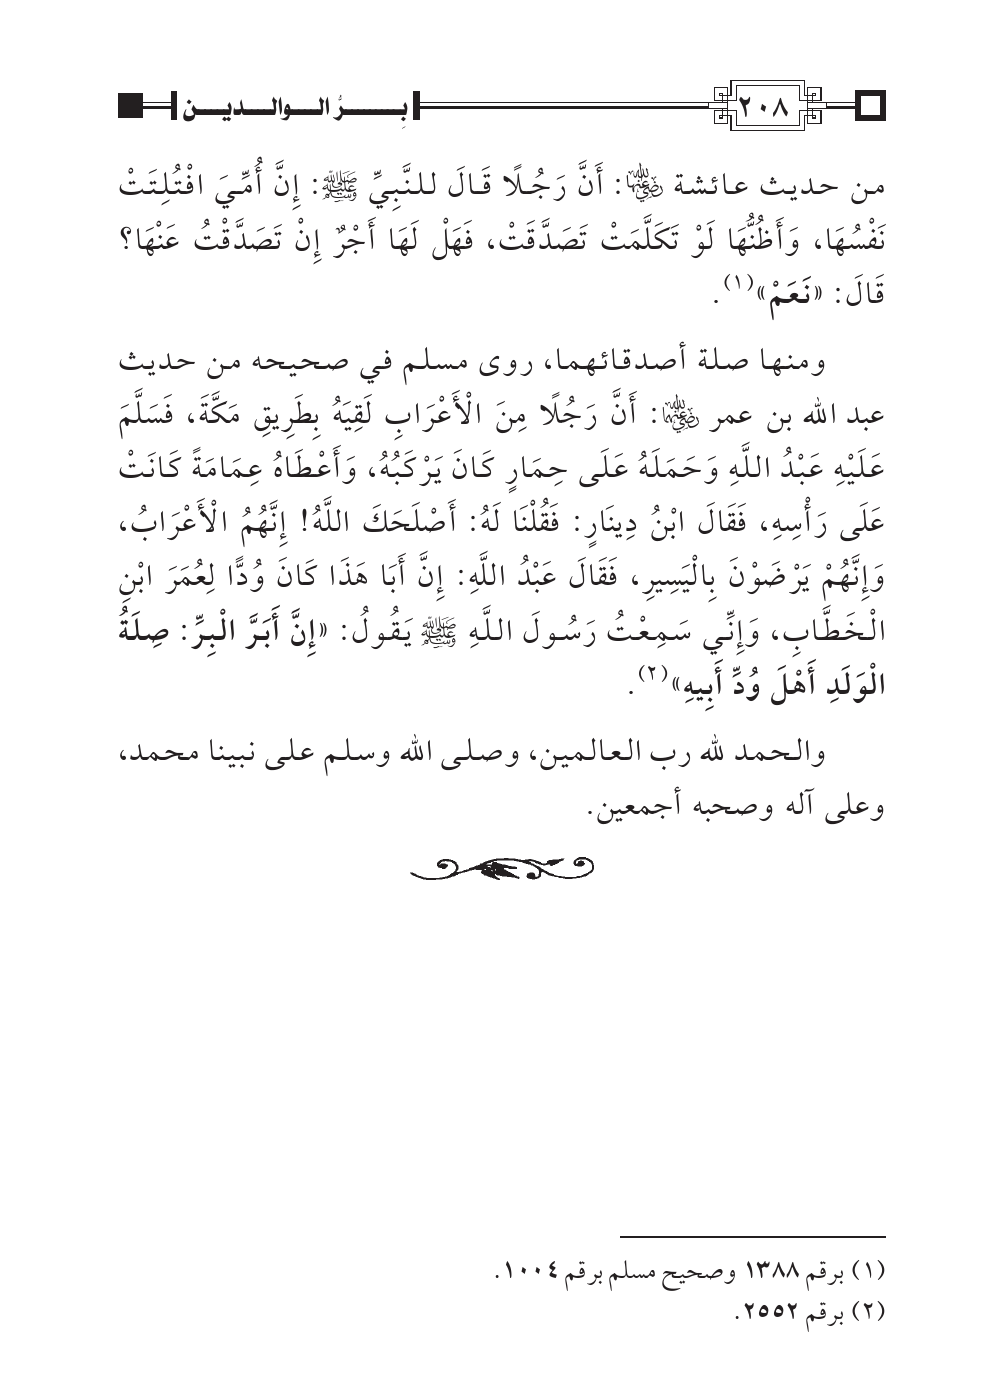 ٢٠٨ بِــرُّ الــوالــديــن
من حديث عائشة رضي الله عنها: أَنَّ رَجُلًا قَالَ للنَّبِيِّ ﷺ: إِنَّ أُمِّيَ افْتُلِتَتْ
نَفْسُهَا، وَأَظُنُّهَا لَوْ تَكَلَّمَتْ تَصَدَّقَتْ، فَهَلْ لَهَا أَجْرٌ إِنْ تَصَدَّقْتُ عَنْهَا؟
قَالَ: «نَعَمْ»(١).
ومنها صلة أصدقائهما، روى مسلم في صحيحه من حديث
عبد الله بن عمر رضي الله عنهما: أَنَّ رَجُلًا مِنَ الْأَعْرَابِ لَقِيَهُ بِطَرِيقِ مَكَّةَ، فَسَلَّمَ
عَلَيْهِ عَبْدُ اللَّهِ وَحَمَلَهُ عَلَى حِمَارٍ كَانَ يَرْكَبُهُ، وَأَعْطَاهُ عِمَامَةً كَانَتْ
عَلَى رَأْسِهِ، فَقَالَ ابْنُ دِينَارٍ: فَقُلْنَا لَهُ: أَصْلَحَكَ اللَّهُ! إِنَّهُمُ الْأَعْرَابُ،
وَإِنَّهُمْ يَرْضَوْنَ بِالْيَسِيرِ، فَقَالَ عَبْدُ اللَّهِ: إِنَّ أَبَا هَذَا كَانَ وُدًّا لِعُمَرَ ابْنِ
الْخَطَّابِ، وَإِنِّي سَمِعْتُ رَسُولَ اللَّهِ ﷺ يَقُولُ: «إِنَّ أَبَرَّ الْبِرِّ: صِلَةُ
الْوَلَدِ أَهْلَ وُدِّ أَبِيهِ»(٢).
والحمد لله رب العالمين، وصلى الله وسلم على نبينا محمد،
وعلى آله وصحبه أجمعين.
(١) برقم ١٣٨٨ وصحيح مسلم برقم ١٠٠٤.
(٢) برقم ٢٥٥٢.